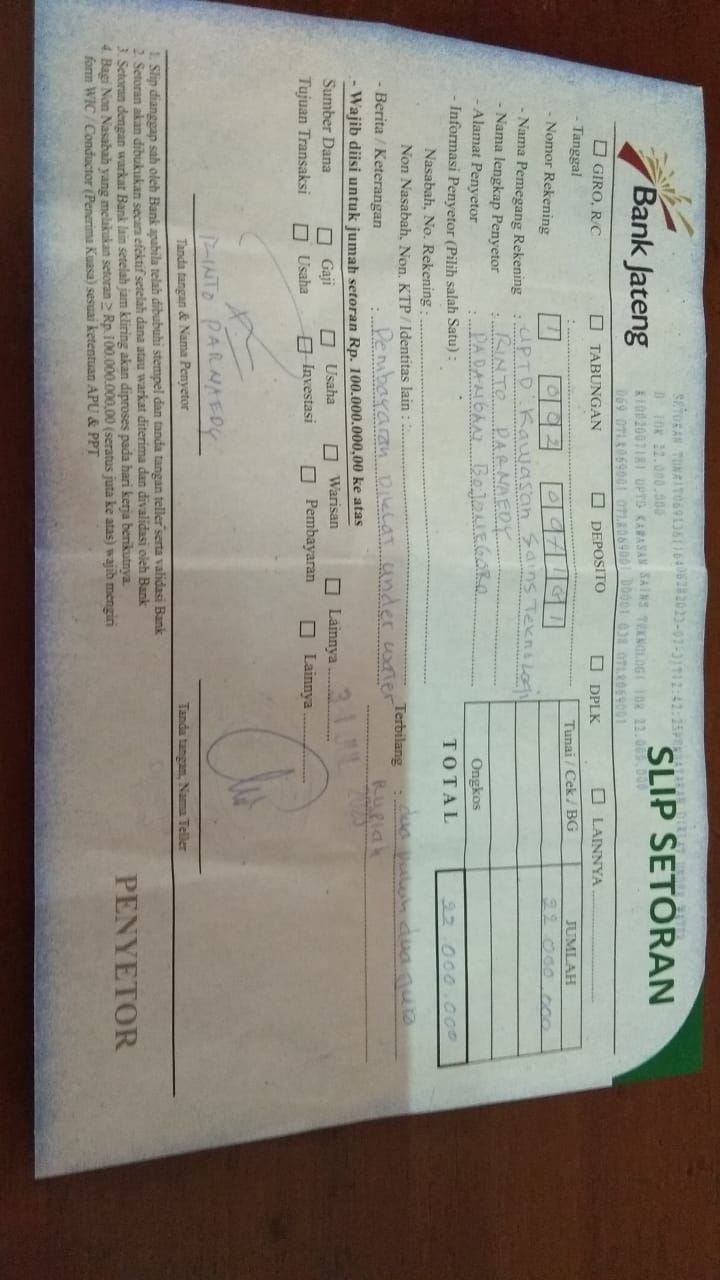 Bank Jateng
SETORAN TUNAI
D IDR 22.000.000
K1002007181 UPTD KAWASAN SAINS TEKNOLOGI IDR 22.000.000
069 OTLR069001 OTLR069001 D0001 038 OTLR069001
SLIP SETORAN
GIRO, R/C TABUNGAN DEPOSITO DPLK LAINNYA
- Tanggal :
- Nomor Rekening 1 002
- Nama Pemegang Rekening : UPTD Kawasan Sains Teknologi
- Nama lengkap Penyetor : RINTO PARNAEDY
- Alamat Penyetor : PADANGAN BOJONEGORO
- Informasi Penyetor (Pilih salah Satu) :
Nasabah, No. Rekening :
Non Nasabah, Non. KTP / Identitas lain :
- Berita / Keterangan : Pembayaran Diklat under water
Tunai / Cek / BG JUMLAH
22 000.000
Ongkos
TOTAL 22.000.000
Terbilang : dua puluh dua juta
Rupiah
- Wajib diisi untuk jumah setoran Rp. 100.000.000,00 ke atas
31 JUL 2023
Sumber Dana Gaji Usaha Warisan Lainnya
Tujuan Transaksi Usaha Investasi Pembayaran Lainnya
RINTO PARNAEDY
Tanda tangan & Nama Penyetor
Tanda tangan, Nama Teller
1. Slip dianggap sah oleh Bank apabila telah dibubuhi stempel dan tanda tangan teller serta validasi Bank
2. Setoran akan dibukukan secara efektif setelah dana atau warkat diterima dan divalidasi oleh Bank
3. Setoran dengan warkat Bank lain setelah jam kliring akan diproses pada hari kerja berikutnya.
4. Bagi Non Nasabah yang melakukan setoran ≥ Rp.100.000.000,00 (seratus juta ke atas) wajib mengiri
form WIC / Conductor (Penerima Kuasa) sesuai ketentuan APU & PPT
PENYETOR